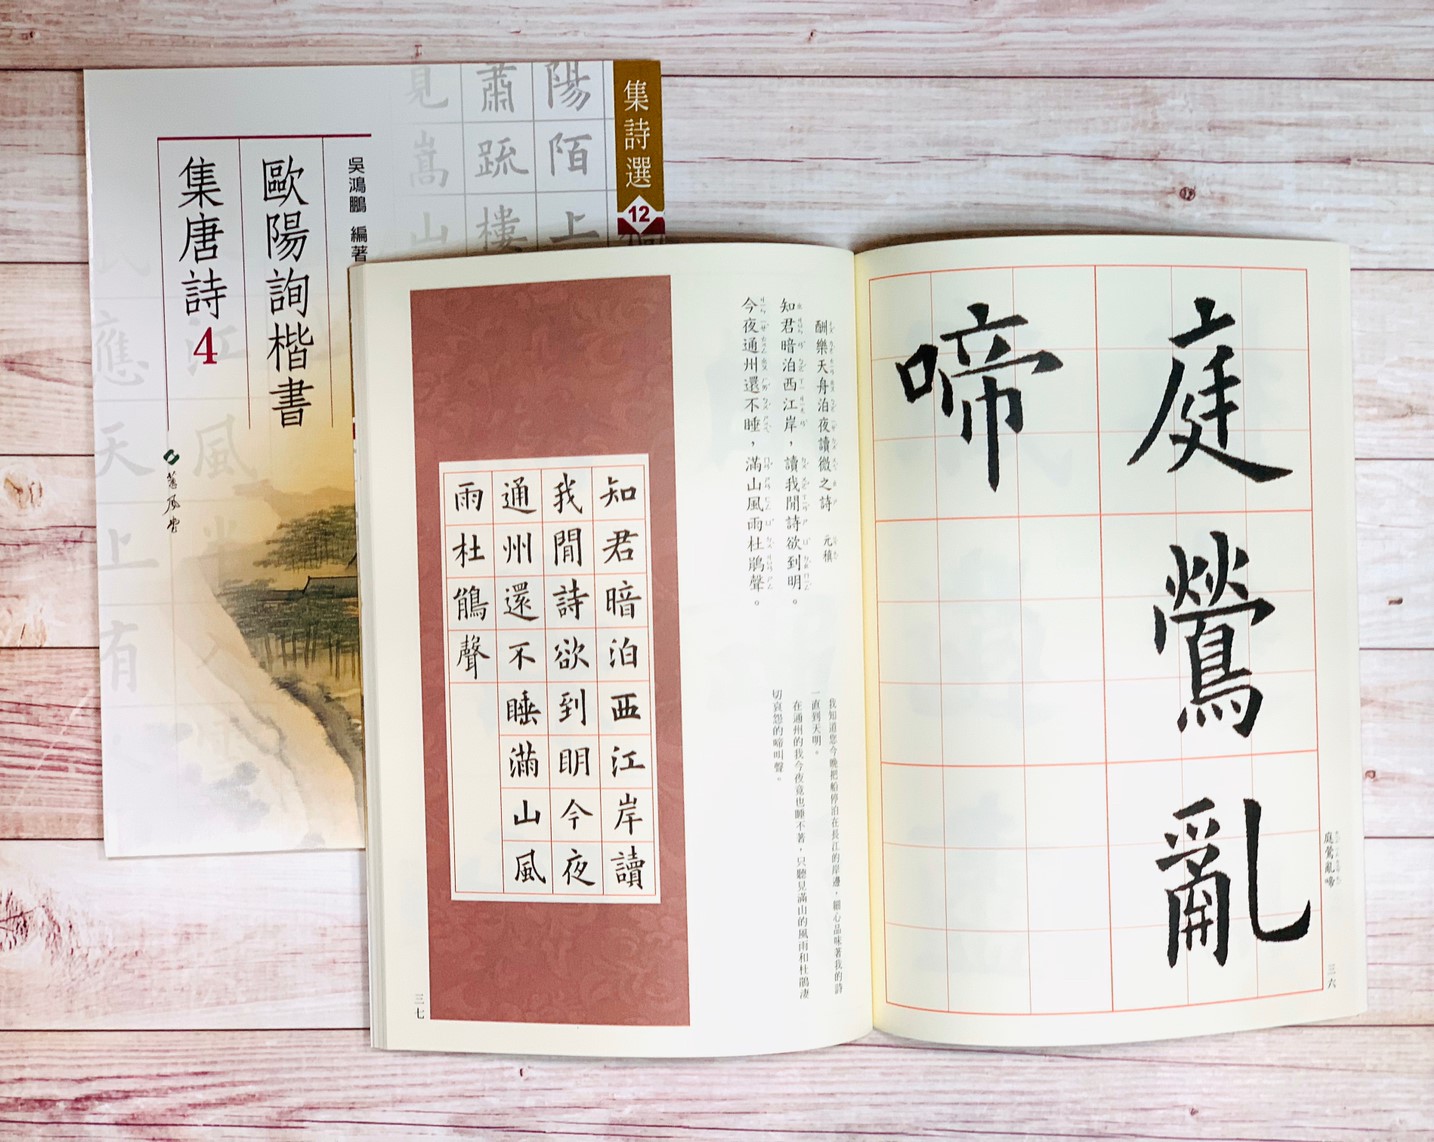 集詩選
12
吳鴻鵬 編著
歐陽詢楷書
集唐詩4
蕙風堂
陽陌上
蕭疏樓
見嵩山
江風半入
應天上有
庭鶯亂
啼
庭鶯亂啼
三六
酬樂天舟泊夜讀微之詩 元稹
知君暗泊西江岸，讀我閒詩欲到明。
今夜通州還不睡，滿山風雨杜鵑聲。
我知道您今晚把船停泊在長江的岸邊，細心品味著我的詩
一直到天明。
在通州的我今夜竟也睡不著，只聽見滿山的風雨和杜鵑淒
切哀怨的啼叫聲。
知君暗泊西江岸讀
我閒詩欲到明今夜
通州還不睡滿山風
雨杜鵑聲
三七